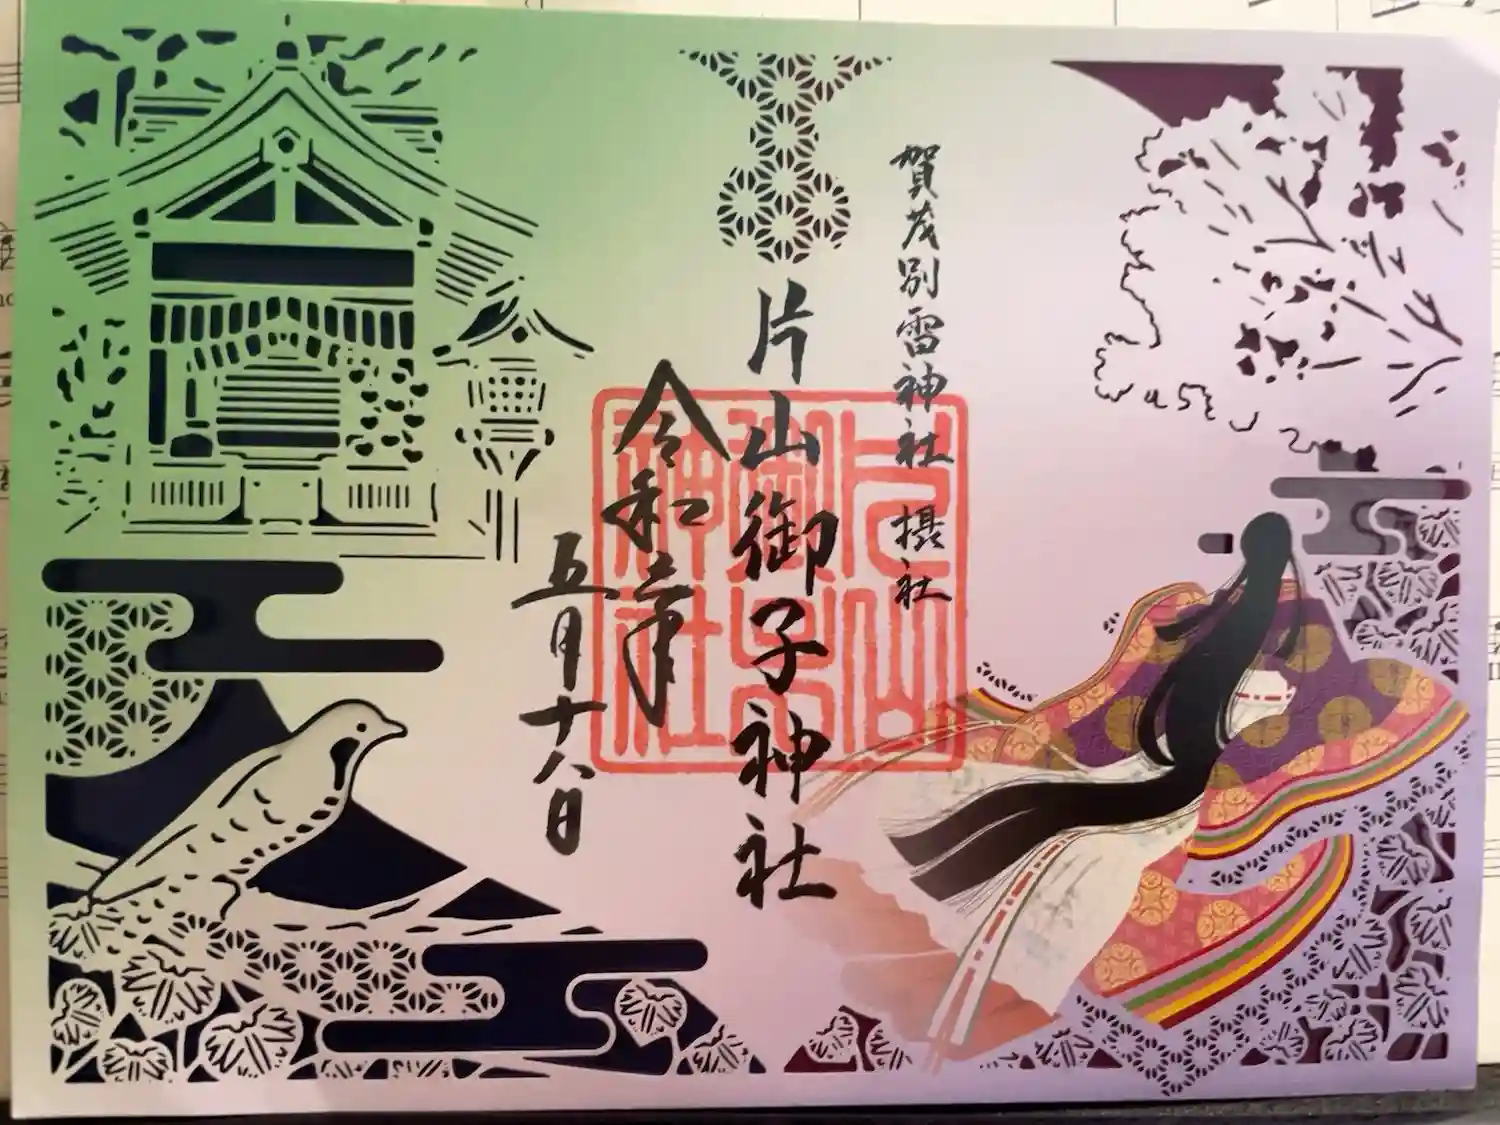 賀茂別雷神社 摂社
片山御子神社
片山
御子
神社
令和六年
五月十八日